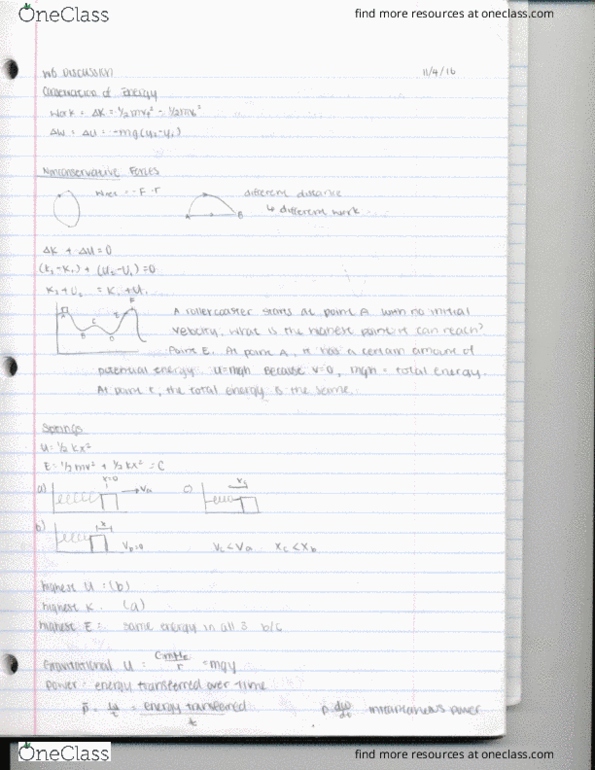 OneClass
find more resources at oneclass.com
W6 DISCUSSION 11/4/16
Conservation of Energy
Work = ΔK = ½mv₂² - ½mv₁²
ΔW = ΔU = -mg(y₂-y₁)
Nonconservative Forces
different distance
↳ different work
B
ΔK + ΔU = 0
(K₂-K₁) + (U₂-U₁) = 0
K₂+U₂ = K₁+U₁
A rollercoaster starts at point A with no initial
velocity. What is the highest point it can reach?
Point E. At point A, it has a certain amount of
potential energy. U=mgh Because v=0, mgh = total energy.
At point E, the total energy is the same.
Springs
U = ½ kx²
E = ½mv² + ½kx² = C
a) x=0 → Va
c) Xc
b) x
Vb=0 Vc < Va Xc < Xb
highest U : (b)
highest K : (a)
highest E : same energy in all 3 b/c
Gravitational U = = mgy
power = energy transferred over time
= energy transferred / t
instantaneous power
OneClass
find more resources at oneclass.com